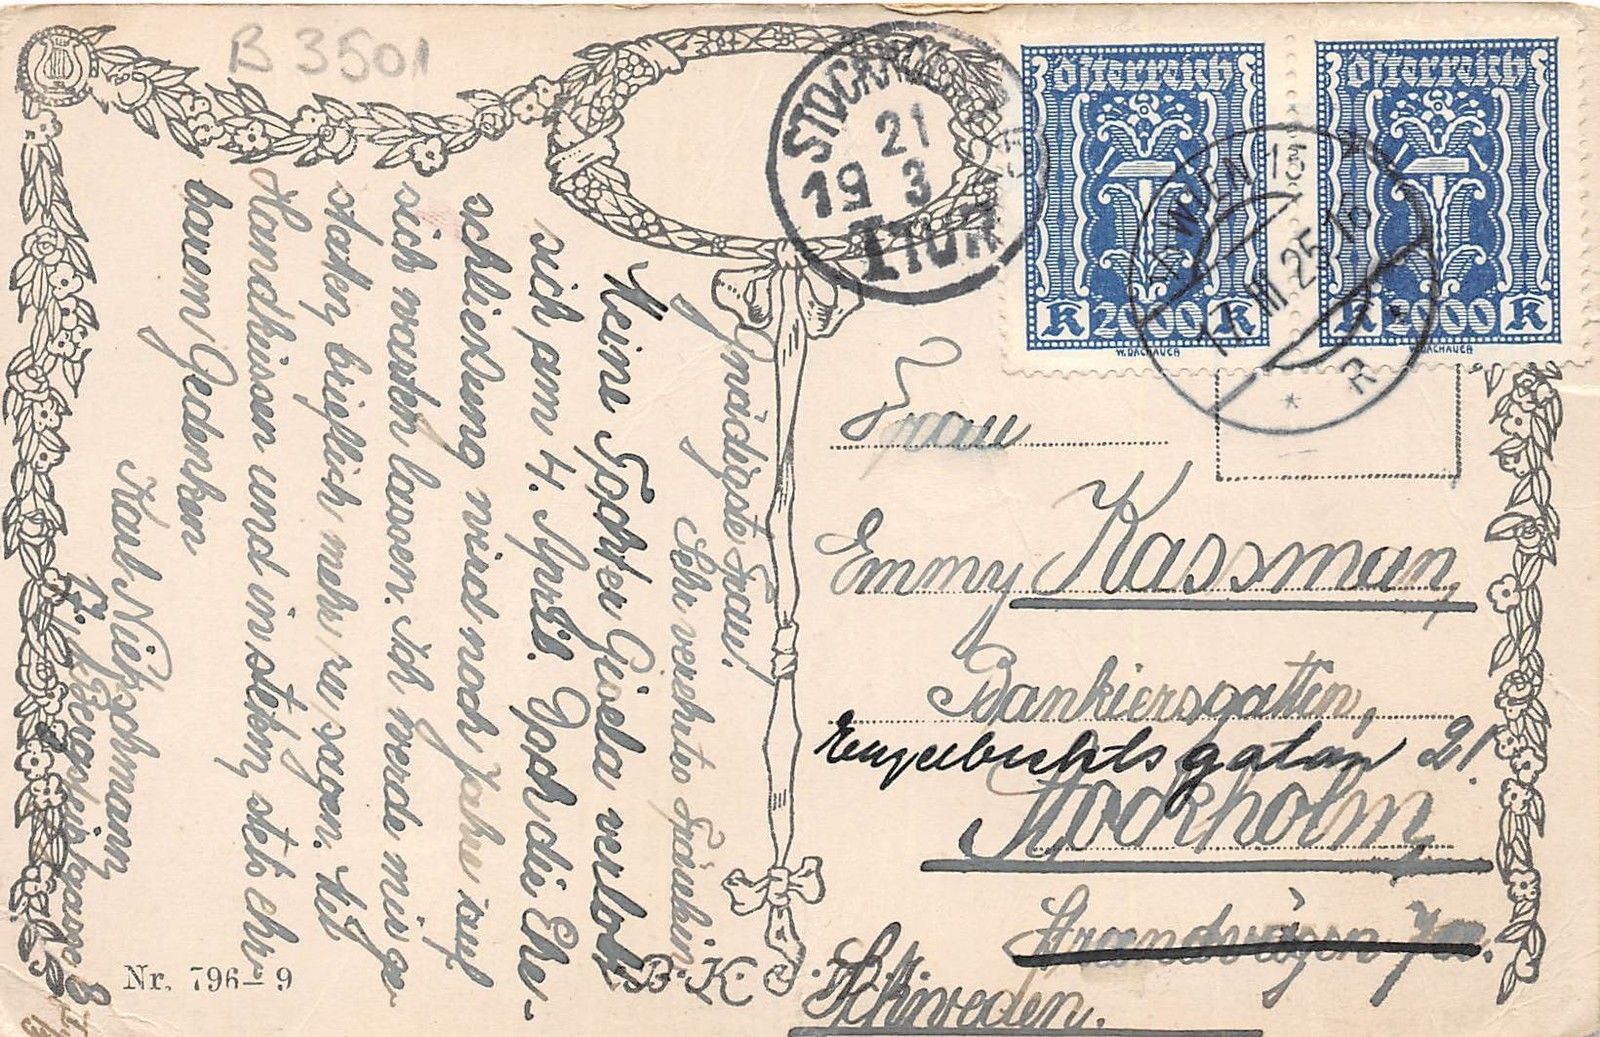 B 3501
STOCKHOLM
21
19 3
1 TUR
Österreich
K 2000 K
W. DACHAUER
Österreich
K 2000 K
W. DACHAUER
WIEN 15
17. III. 25 16
* R
Gnädigste Frau!
Sehr verehrte Gönnerin
Meine Tochter Gisela verlobt
sich am 4. April. Doch die Ehe-
schließung wird noch Jahre auf
sich warten lassen. Ich werde mir ge-
statten brieflich mehr zu sagen. Mit
Handküssen und in stetem ehr-
barem Gedenken
Karl Nietschmann
Frau
Emmy Kassman,
Bankiersgattin,
Engelbrektsgatan 21
Stockholm,
Strandvägen 7a.
Schweden.
B.K.
Nr. 796–9